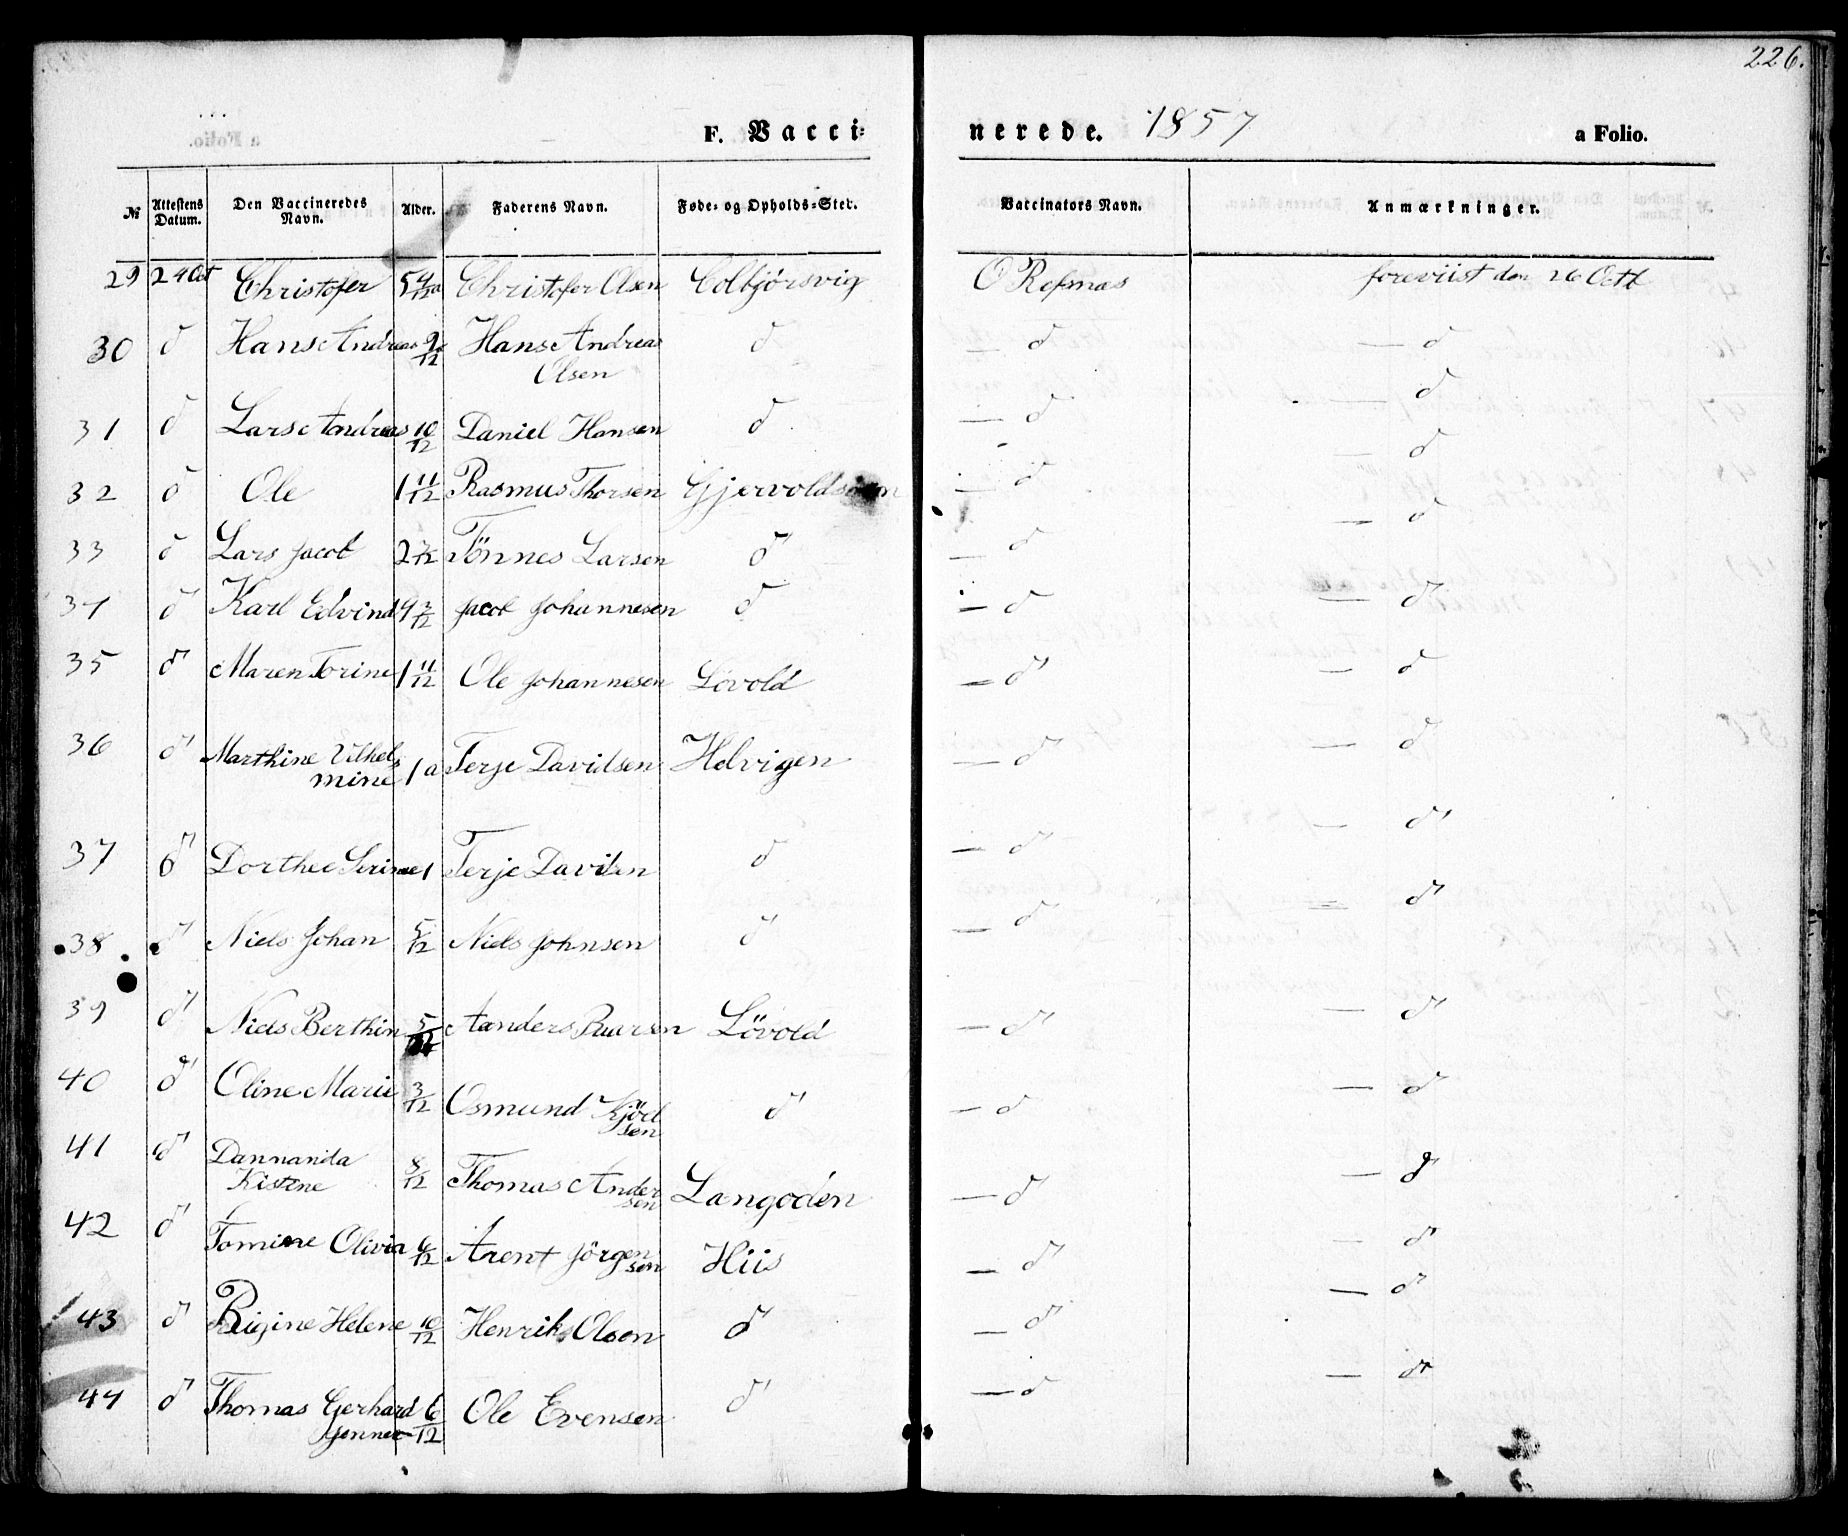 226.
F. Vacci= nerede. 1857 a Folio.
№ Attestens Datum. Den Vaccineredes Navn. Alder. Faderens Navn. Føde- og Opholds-Sted. Vaccinators Navn. Anmærkninger.
29 24 Oct Christofer 5 4/12 a Christofer Olsen Colbjörsvig O Refsnæs foreviist den 26 Octb
30 d Hans Andreas 9/12 Hans Andreas Olsen d — d — d
31 d Lars Andreas 10/12 Daniel Hansen d — d — d
32 d Ole 1 11/12 Rasmus Thorsen — d — d
33 d Lars Jacob 2 Tönnes Larsen d — d — d
34 d Karl Edvind Jacob Johannesen d — d — d
35 d Maren Torine 1 11/12 Ole Johannesen Lövold — d — d
36 d Marthine Vilhel=
mine 1 a Terje Davidsen Helvigen — d — d
37 d Dorthee Serine 1 Terje Davidsen d — d — d
38 d Niels Johan 5/12 Niels Johnsen d — d — d
39 d Niels Berthin 5/12 Aanders Lövold — d — d
40 d Oline Marie 3/12 Osmund sen d — d — d
41 d Dannanda
Kistine 8/12 Thomas Ander
sen Langodén — d — d
42 d Tomine Olivia 6/12 Arent Jörgen
sen Hiis — d — d
43 d Rigine Helene 10/12 Henrik Olsen d — d — d
44 d Thomas Gerhard 6/12 Ole Evensen d — d — d